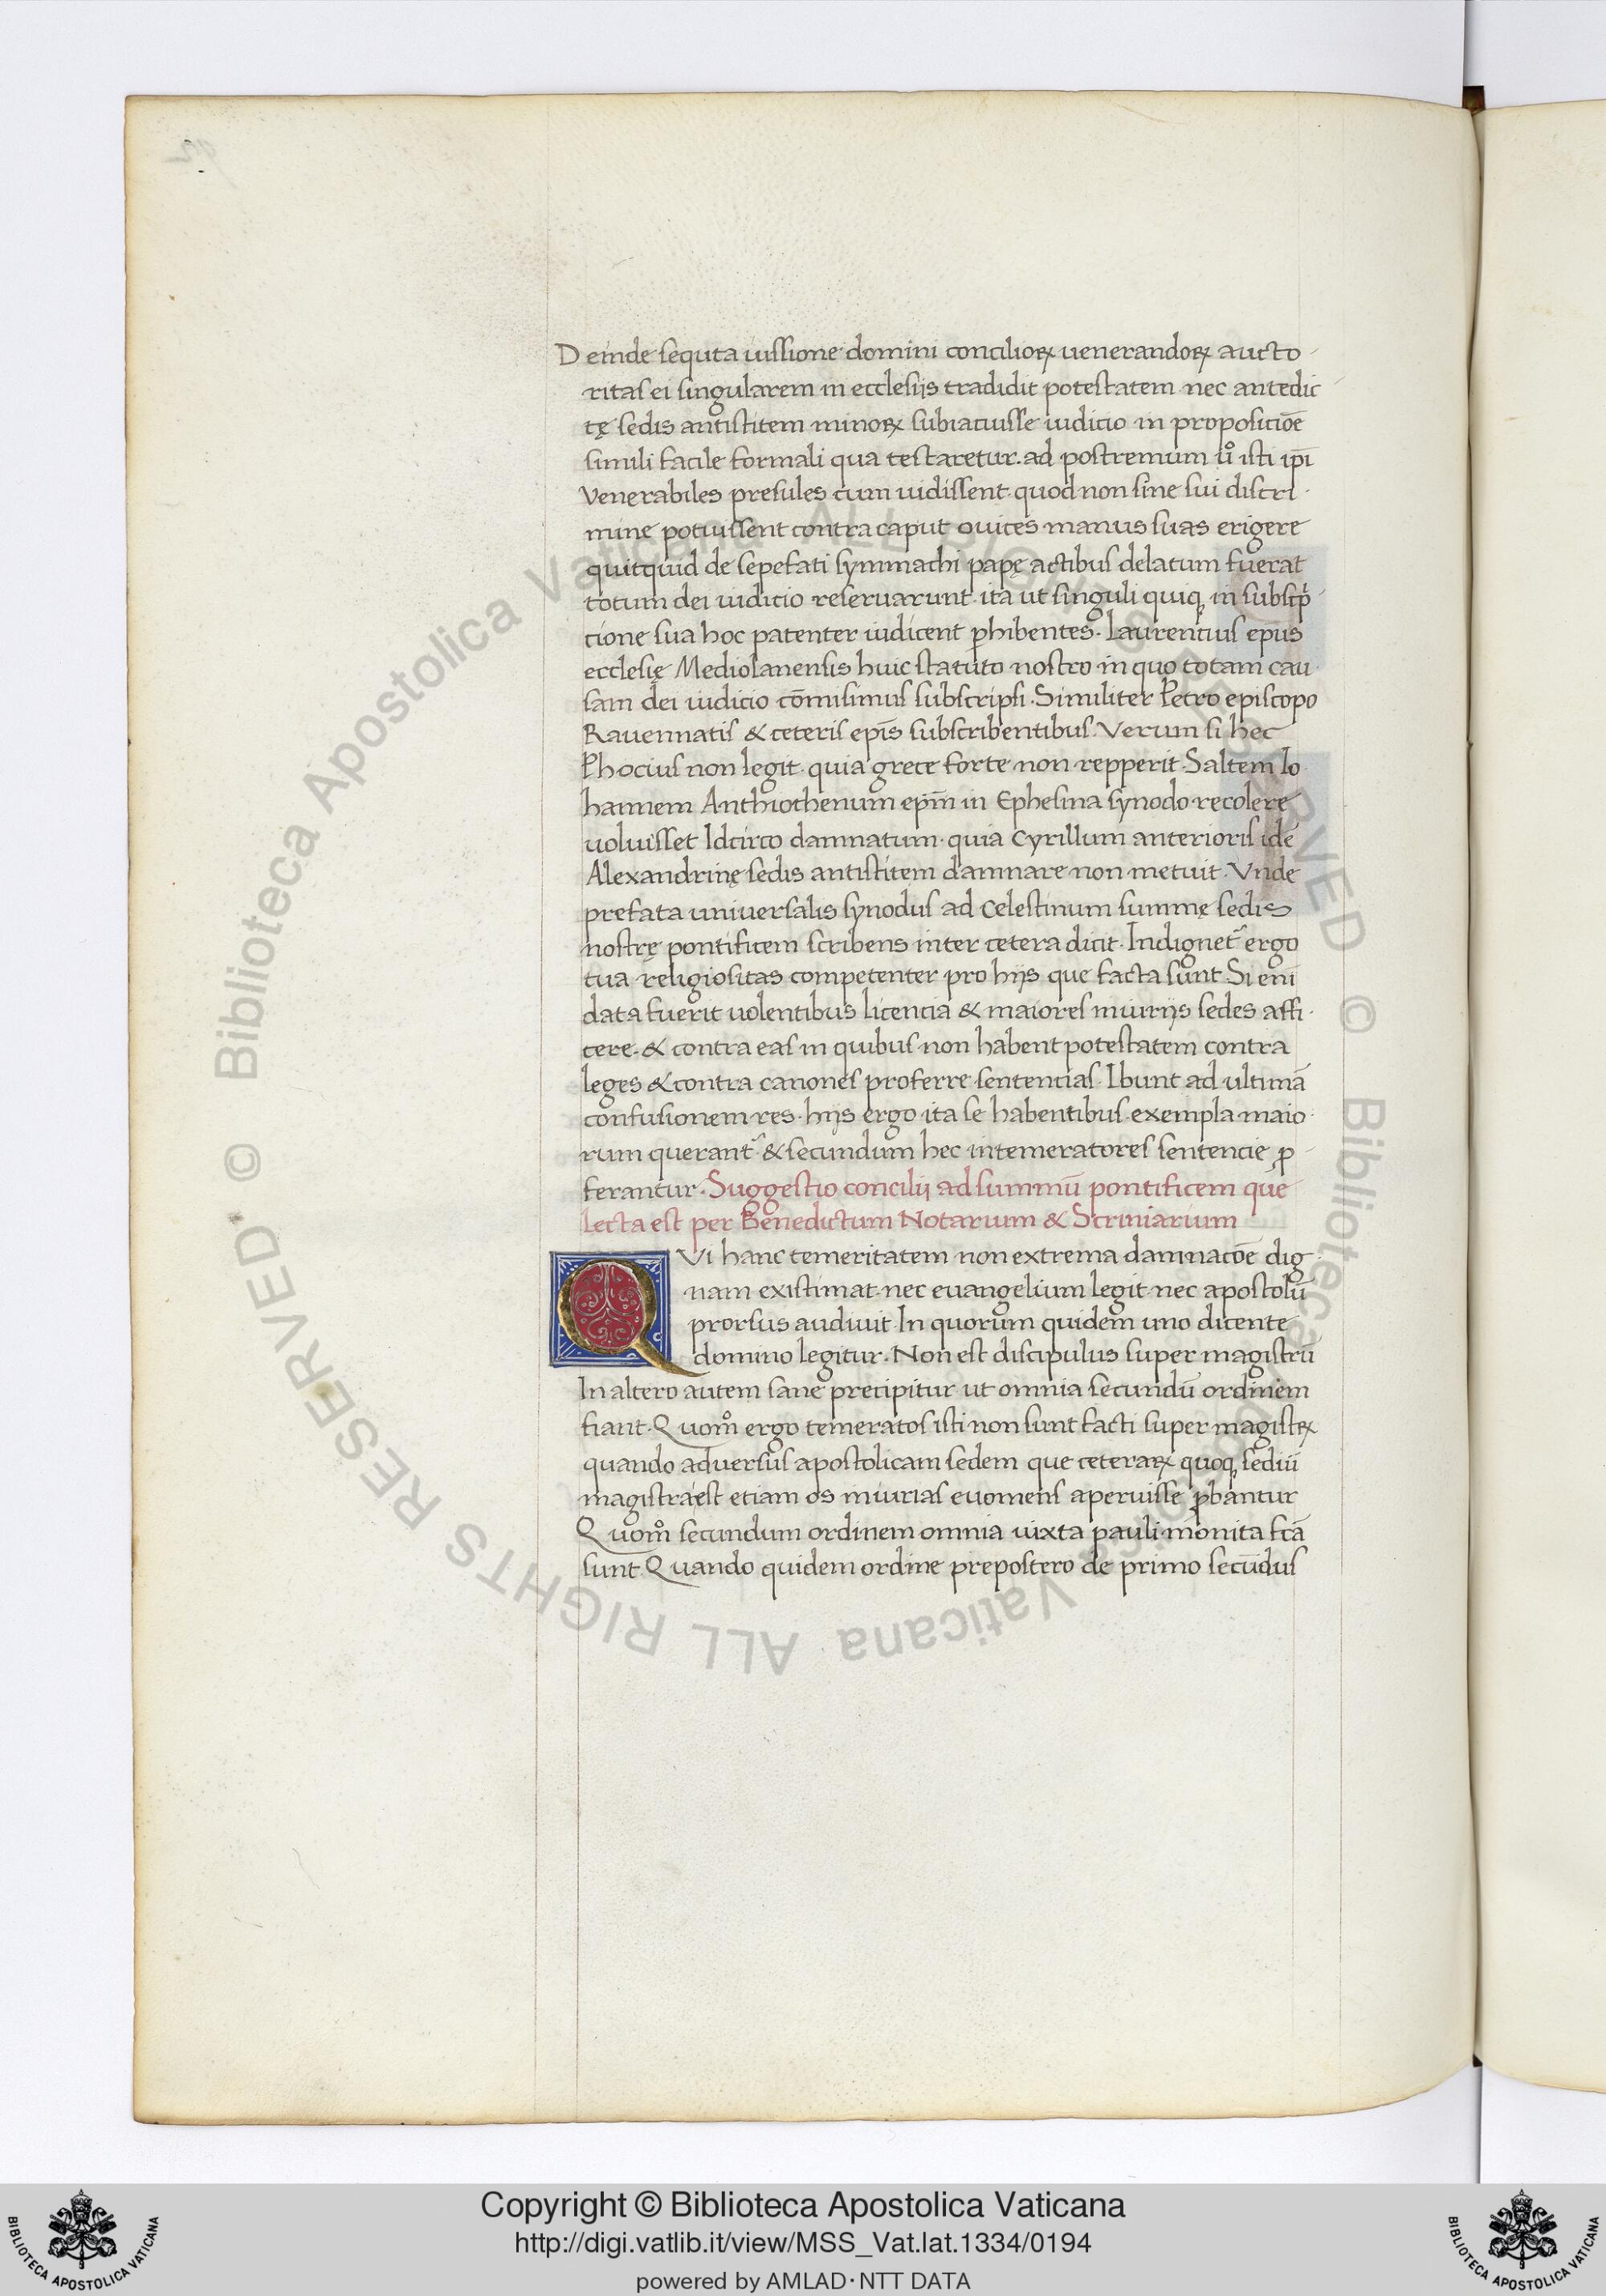 Deinde sequta iussione domini conciliorꝝ uenerandorꝝ aucto
ritas ei singularem in ecclesiis tradidit potestatem nec antedic
tę sedis antistitem minorꝝ subiacuisse iudicio in proposicioē
simili facile formali qua testaretur. ad postremum u͛o isti ip̄i
Venerabiles presules cum uidissent. quod non sine sui discri
mine potuissent contra caput ouices manus suas erigere
quitquid de sepefati symmachi papę actibus delatum fuerat
totum dei iudicio reseruarunt. ita ut singuli quiqꝫ in subscp̄
tione sua hoc patenter iudicent ꝑhibentes. Laurentius ep̄us
ecclesię Mediolanensis huic statuto nostro in quo totam cau
sam dei iudicio cōmisimus subscripsi. Similiter Petro episcopo
Rauennatis & ceteris epīs subscribentibus. Verum si hec
Phocius non legit. quia grece forte non repperit. Saltem Io
hannem Anthiothenum ep̄m in Ephesina synodo recolere
uoluisset Idcirco damnatum. quia Cyrillum anterioris idē
Alexandrinę sedis antistitem damnare non metuit. Vnde
prefata universalis synodus ad Celestinum summę sedis
nostrę pontificem scribens inter cetera dicit. Indignet᷑ ergo
tua religiositas competenter pro hijs que facta sunt. Si enī
data fuerit uolentibus licencia & maiores iniurijs sedes affi
cere. & contra eas in quibus non habent potestatem contra
leges & contra canones proferre sentencias. Ibunt ad ultimā
confusionem res. hijs ergo ita se habentibus exempla maio
rum querant᷑ & secundum hec intemeratores sentencie ꝓ
ferantur. Suggestio concilij ad summū pontificem que
lecta est per Benedictum Notarium & Scriniarium
QVi hanc temeritatem non extrema damnacōe dig
nam existimat. nec euangelium legit. nec apostolū
prorsus audiuit. In quorum quidem uno dicente
domino legitur. Non est discipulus super magistrū
In altero autem sane precipitur ut omnia secundū ordinem
fiant. Quom͛o ergo temeratos isti non sunt facti super magistꝝ
quando aduersus apostolicam sedem que ceterarꝝ quoqꝫ sediū
magistra est etiam os iniurias euomens aperuisse ꝓbantur
Quom͛o secundum ordinem omnia iuixta pauli monita fc̄a
sunt. Quando quidem ordine prepostero de primo secūdus
Copyright © Biblioteca Apostolica Vaticana
http://digi.vatlib.it/view/MSS_Vat.lat.1334/0194
powered by AMLAD·NTT DATA